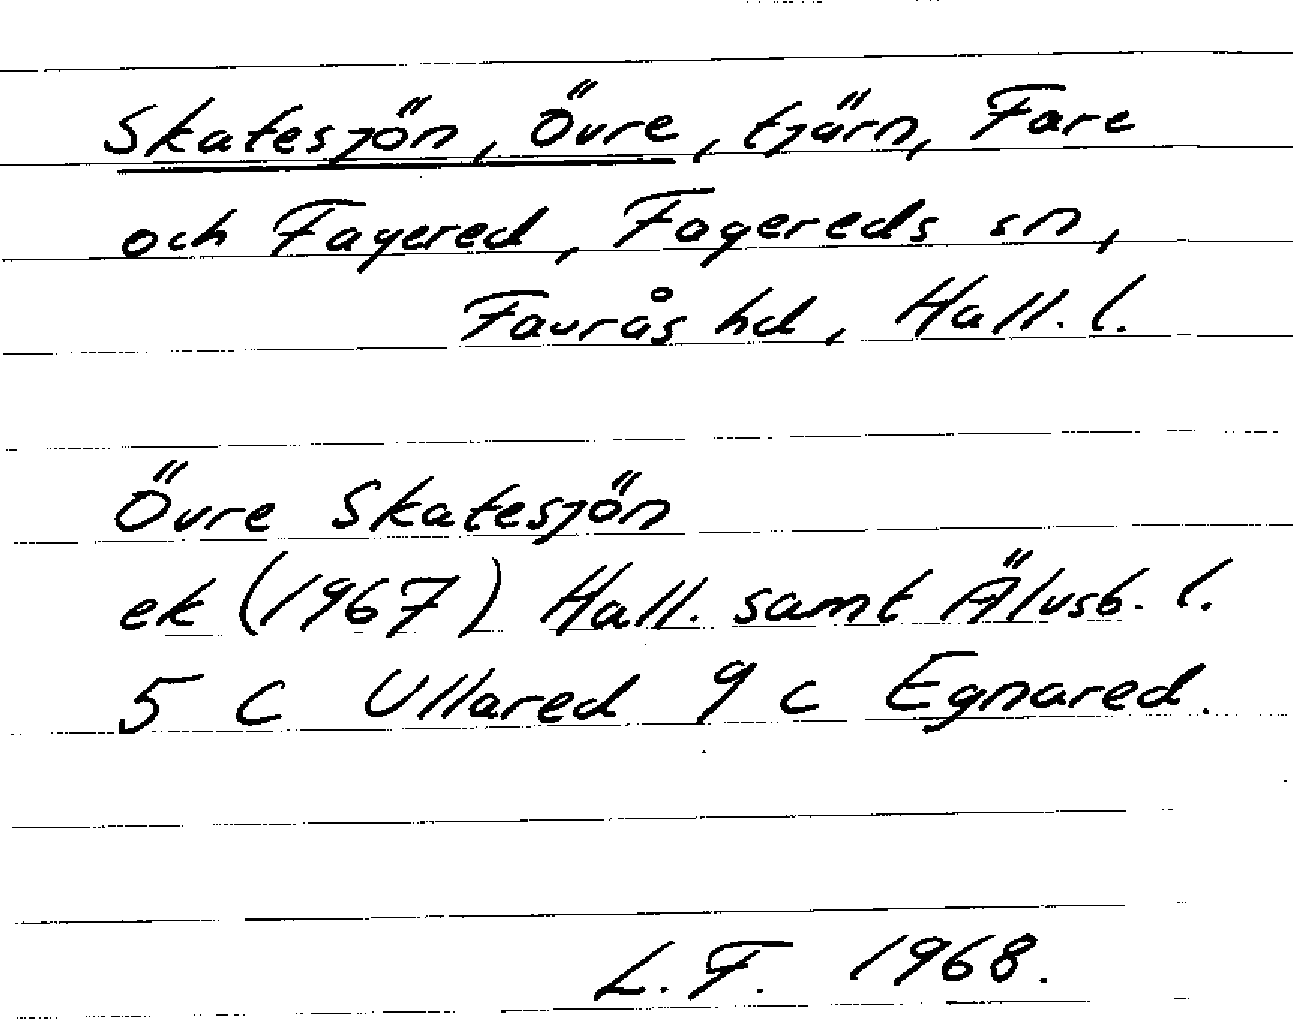 Skatesjön, Övre, tjärn, Fare
och Fagered, Fagereds sn,
Faurås hd, Hall. l.
Övre Skatesjön
ek (1967) Hall. samt Älvsb. l.
5 C Ullared 9 c Egnared.
L. F. 1968.